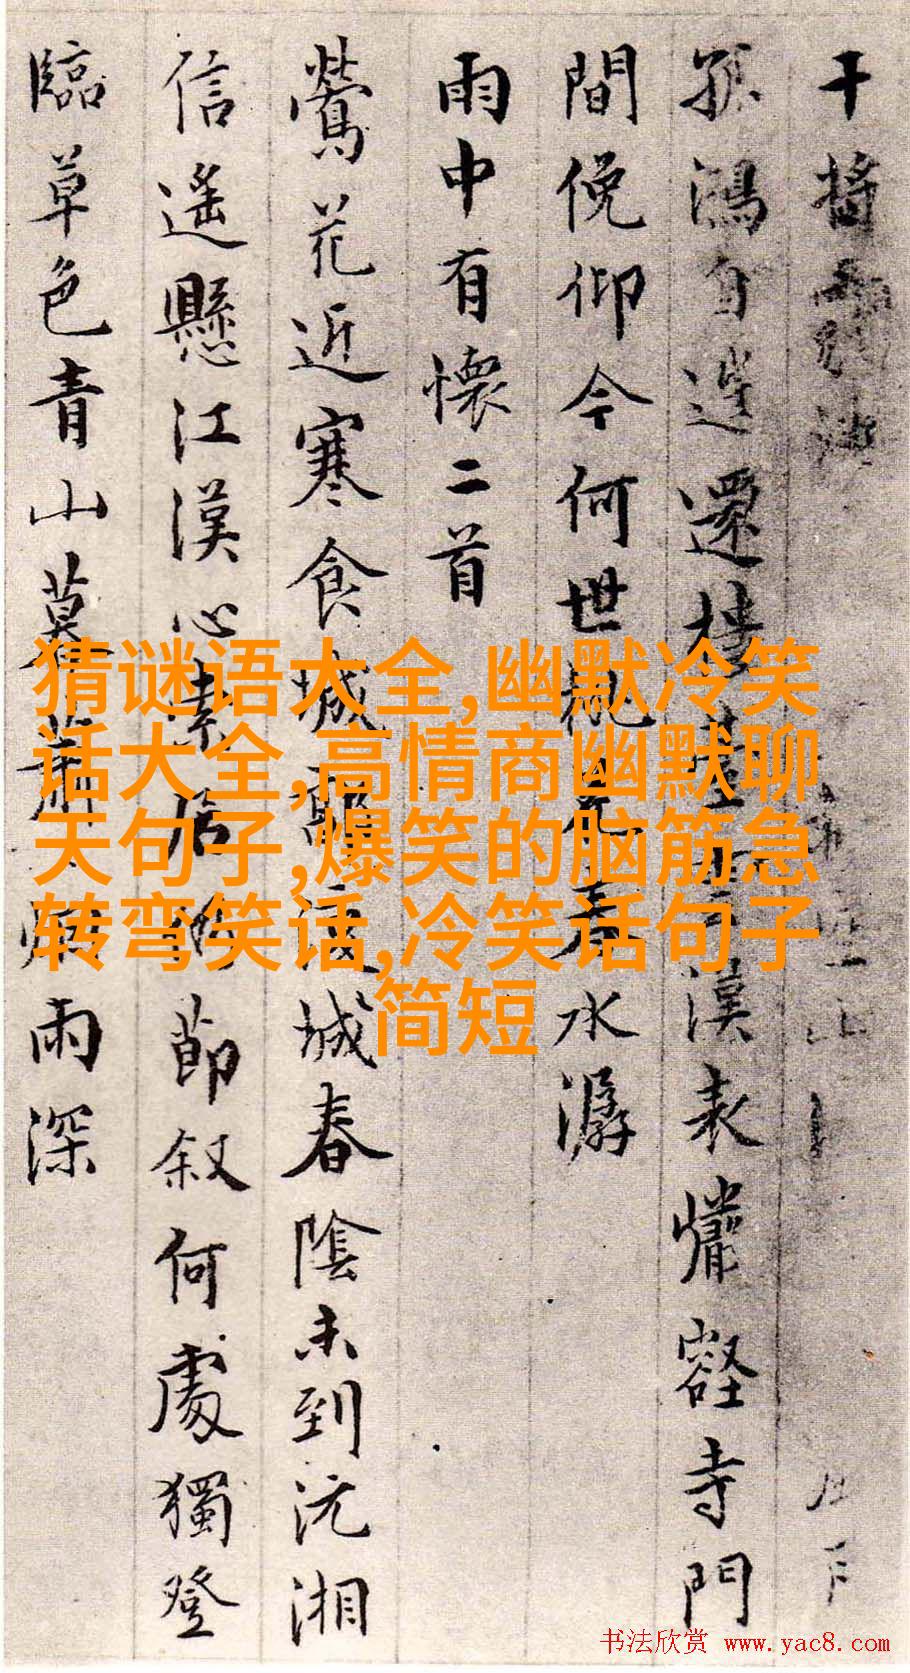 干將
孤鴻自還樓漢表壑寺門
間俛仰今何世花春水潺
雨中有懷二首
鶯花近寒食城城春陰未到沅湘
信遙懸江漢心居節叙何處獨登
臨草色青山暮雨深
猜谜语大全,幽默冷笑
话大全,高情商幽默聊
天句子,爆笑的脑筋急
转弯笑话,冷笑话句子
简短
书法欣赏 www.yac8.com